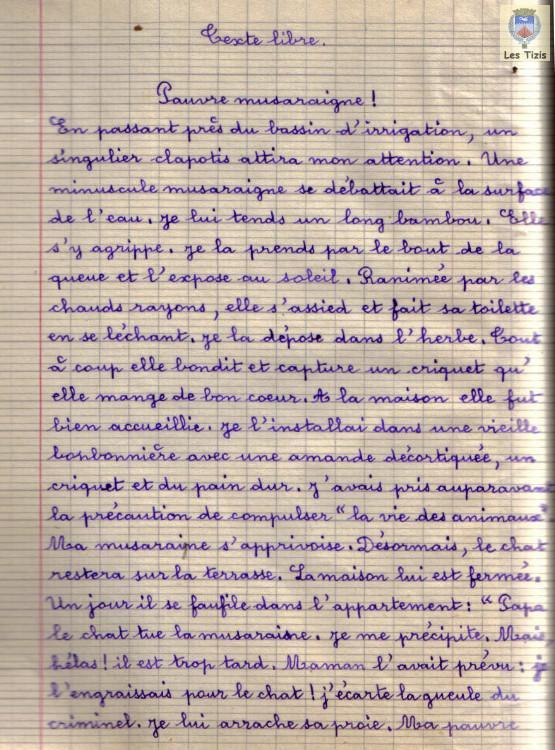 Les Tizis
Texte libre.
Pauvre musaraigne !
En passant près du bassin d'irrigation, un
singulier clapotis attira mon attention. Une
minuscule musaraigne se débattait à la surface
de l'eau. Je lui tends un long bambou. Elle
s'y agrippe. Je la prends par le bout de la
queue et l'expose au soleil. Ranimée par les
chauds rayons, elle s'assied et fait sa toilette
en se léchant. Je la dépose dans l'herbe. Tout
à coup elle bondit et capture un criquet qu'
elle mange de bon coeur. A la maison elle fut
bien accueillie. Je l'installai dans une vieille
bonbonnière avec une amande décortiquée, un
criquet et du pain dur. J'avais pris auparavant
la précaution de compulser "la vie des animaux"
Ma musaraine s'apprivoise. Désormais, le chat
restera sur la terrasse. La maison lui est fermée.
Un jour il se faufile dans l'appartement : "Papa
le chat tue la musaraine. Je me précipite. Mais,
hélas ! il est trop tard. Maman l'avait prévu : je
l'engraissais pour le chat ! j'écarte la gueule du
criminel. Je lui arrache sa proie. Ma pauvre